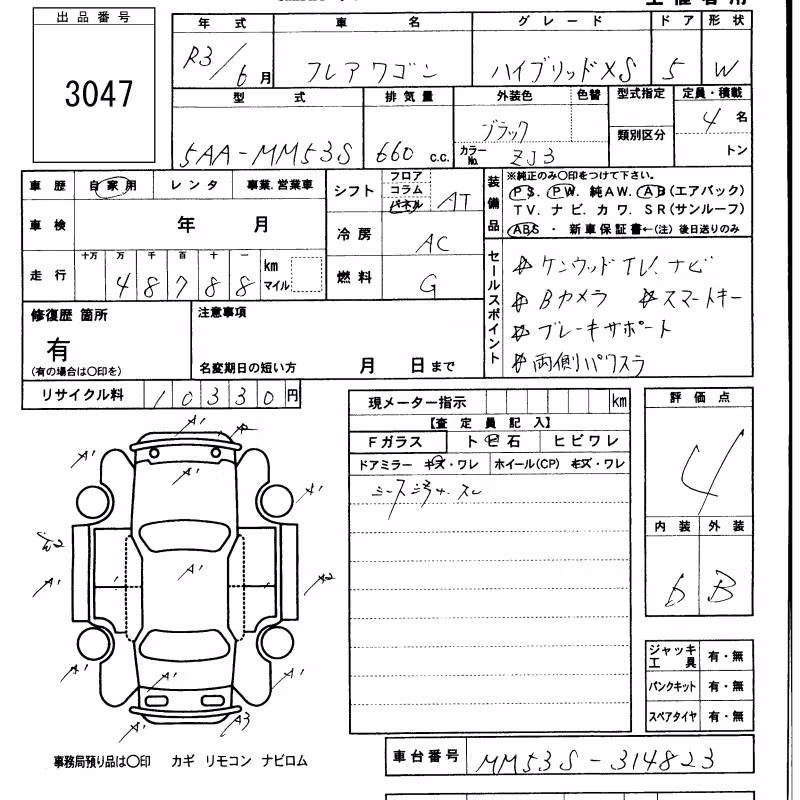 出品番号
3047
年式 車名 グレード ドア 形状
R3/6月 フレアワゴン ハイブリッドXS 5 W
型式 排気量 外装色 色替 型式指定 定員・積載
5AA-MM53S 660 c.c. ブラック 類別区分 4名
カラーNo. ZJ3 トン
車歴 自家用 レンタ 事業.営業車
車検 年 月
走行 十万 万 千 百 十 一 km マイル
4 8 7 8 8
シフト フロア コラム パネル AT
冷房 AC
燃料 G
装備品 ※純正のみ〇印をつけて下さい。
PS. PW. 純AW. AB(エアバック)
TV. ナビ. カワ. SR(サンルーフ)
ABS ・ 新車保証書←(注) 後日送りのみ
セールスポイント
ケンウッドTV.ナビ
Bカメラ スマートキー
ブレーキサポート
両側パワスラ
修復歴 箇所
有
(有の場合は〇印を)
注意事項
名変期日の短い方 月 日まで
リサイクル料 10330円
現メーター指示 km
【査定員記入】
Fガラス トビ石 ヒビワレ
ドアミラー キズ・ワレ ホイール(CP) キズ・ワレ
評価点
4
内装 外装
6 B
A' A' A' R
A' A'
A' A2
A'
A' A' A'
A' A3
ジャッキ工具 有・無
パンクキット 有・無
スペアタイヤ 有・無
事務局預り品は〇印 カギ リモコン ナビロム
車台番号 MM53S-314823